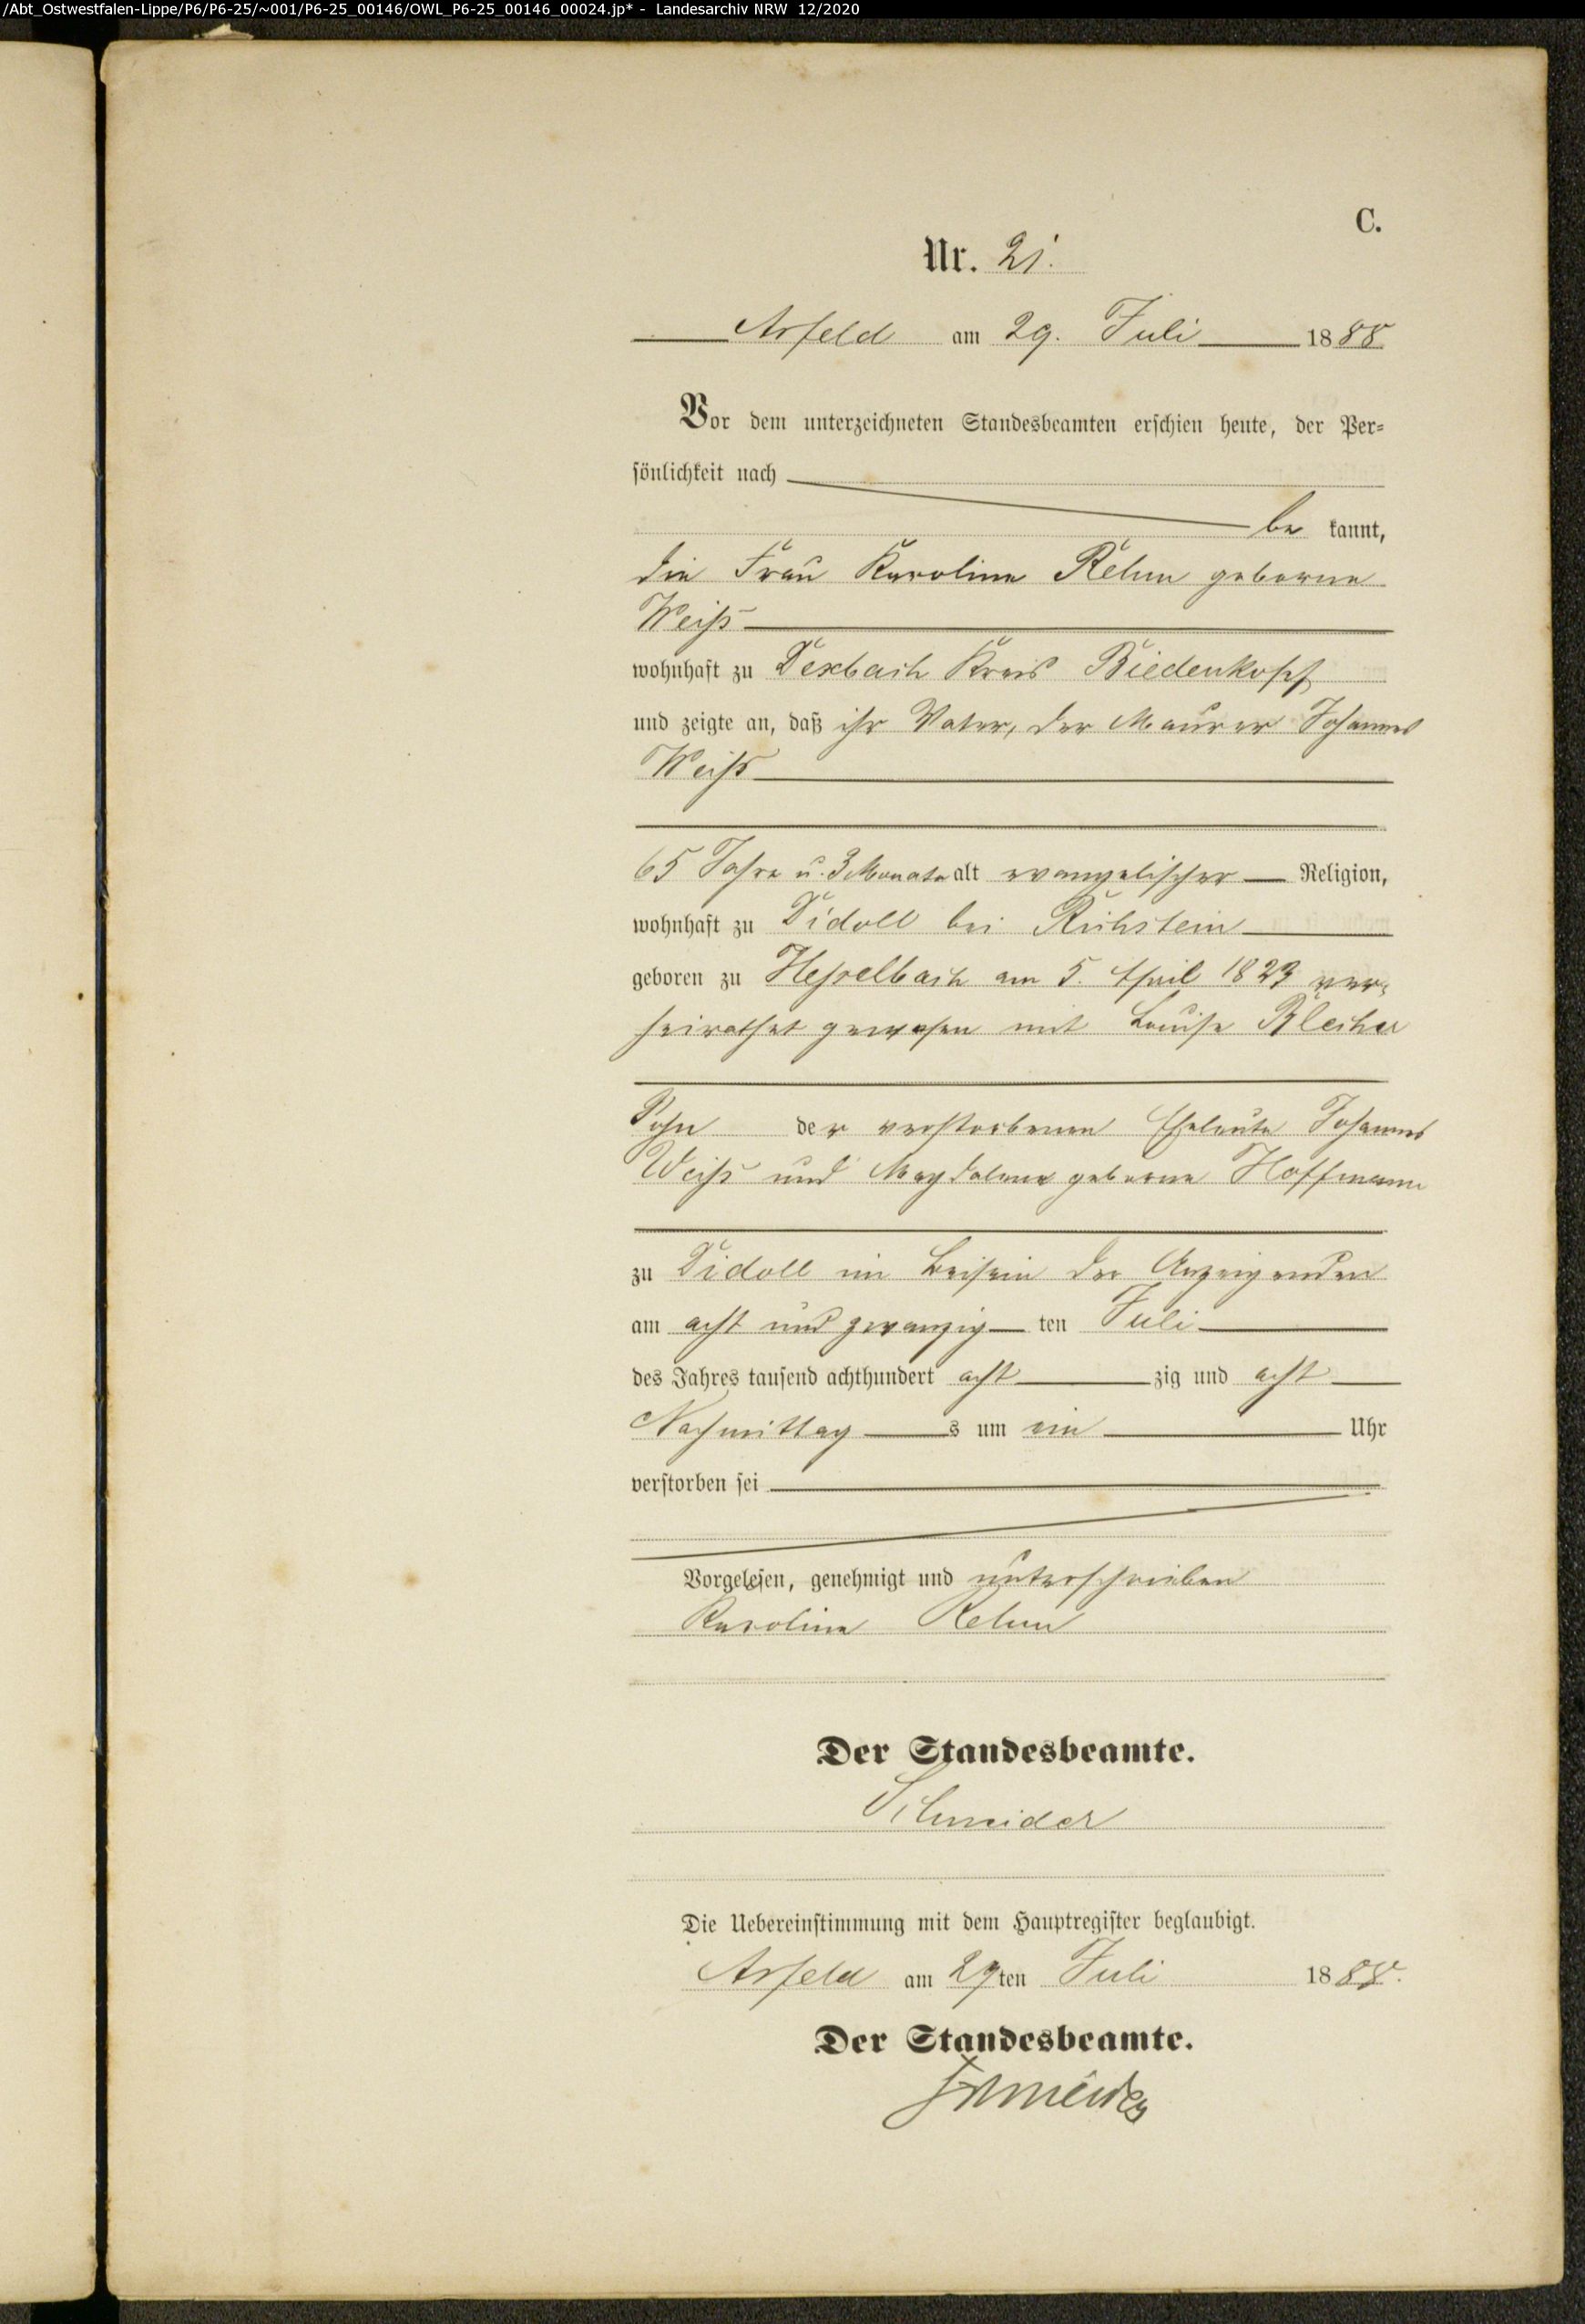 /Abt_Ostwestfalen-Lippe/P6/P6-25/~001/P6-25_00146/OWL_P6-25_00146_00024.jp* - Landesarchiv NRW 12/2020
C.
Nr. 21.
Arfeld am 29. Juli 1888
Vor dem unterzeichneten Standesbeamten erschien heute, der Per-
sönlichkeit nach
be kannt,
die Frau Karoline Rehm geborne
Weiß
wohnhaft zu Dexbach Kreis Biedenkopf
und zeigte an, daß ihr Vater, der Maurer Johannes
Weiß
65 Jahre u. 3 Monate alt evangelischer Religion,
wohnhaft zu Didoll bei Richstein
geboren zu Hesselbach am 5. April 1823 ver-
heirathet gewesen mit Louise Blecher
Sohn der verstorbenen Eheleute Johannes
Weiß und Magdalena geborne Hoffmann
zu Didoll im Beisein der Anzeigenden
am acht und zwanzig ten Juli
des Jahres tausend achthundert acht zig und acht
Nachmittag s um ein Uhr
verstorben sei
Vorgelesen, genehmigt und unterschrieben
Karoline Rehm
Der Standesbeamte.
Schneider
Die Uebereinstimmung mit dem Hauptregister beglaubigt.
Arfeld am 29ten Juli 1888.
Der Standesbeamte.
Schneider